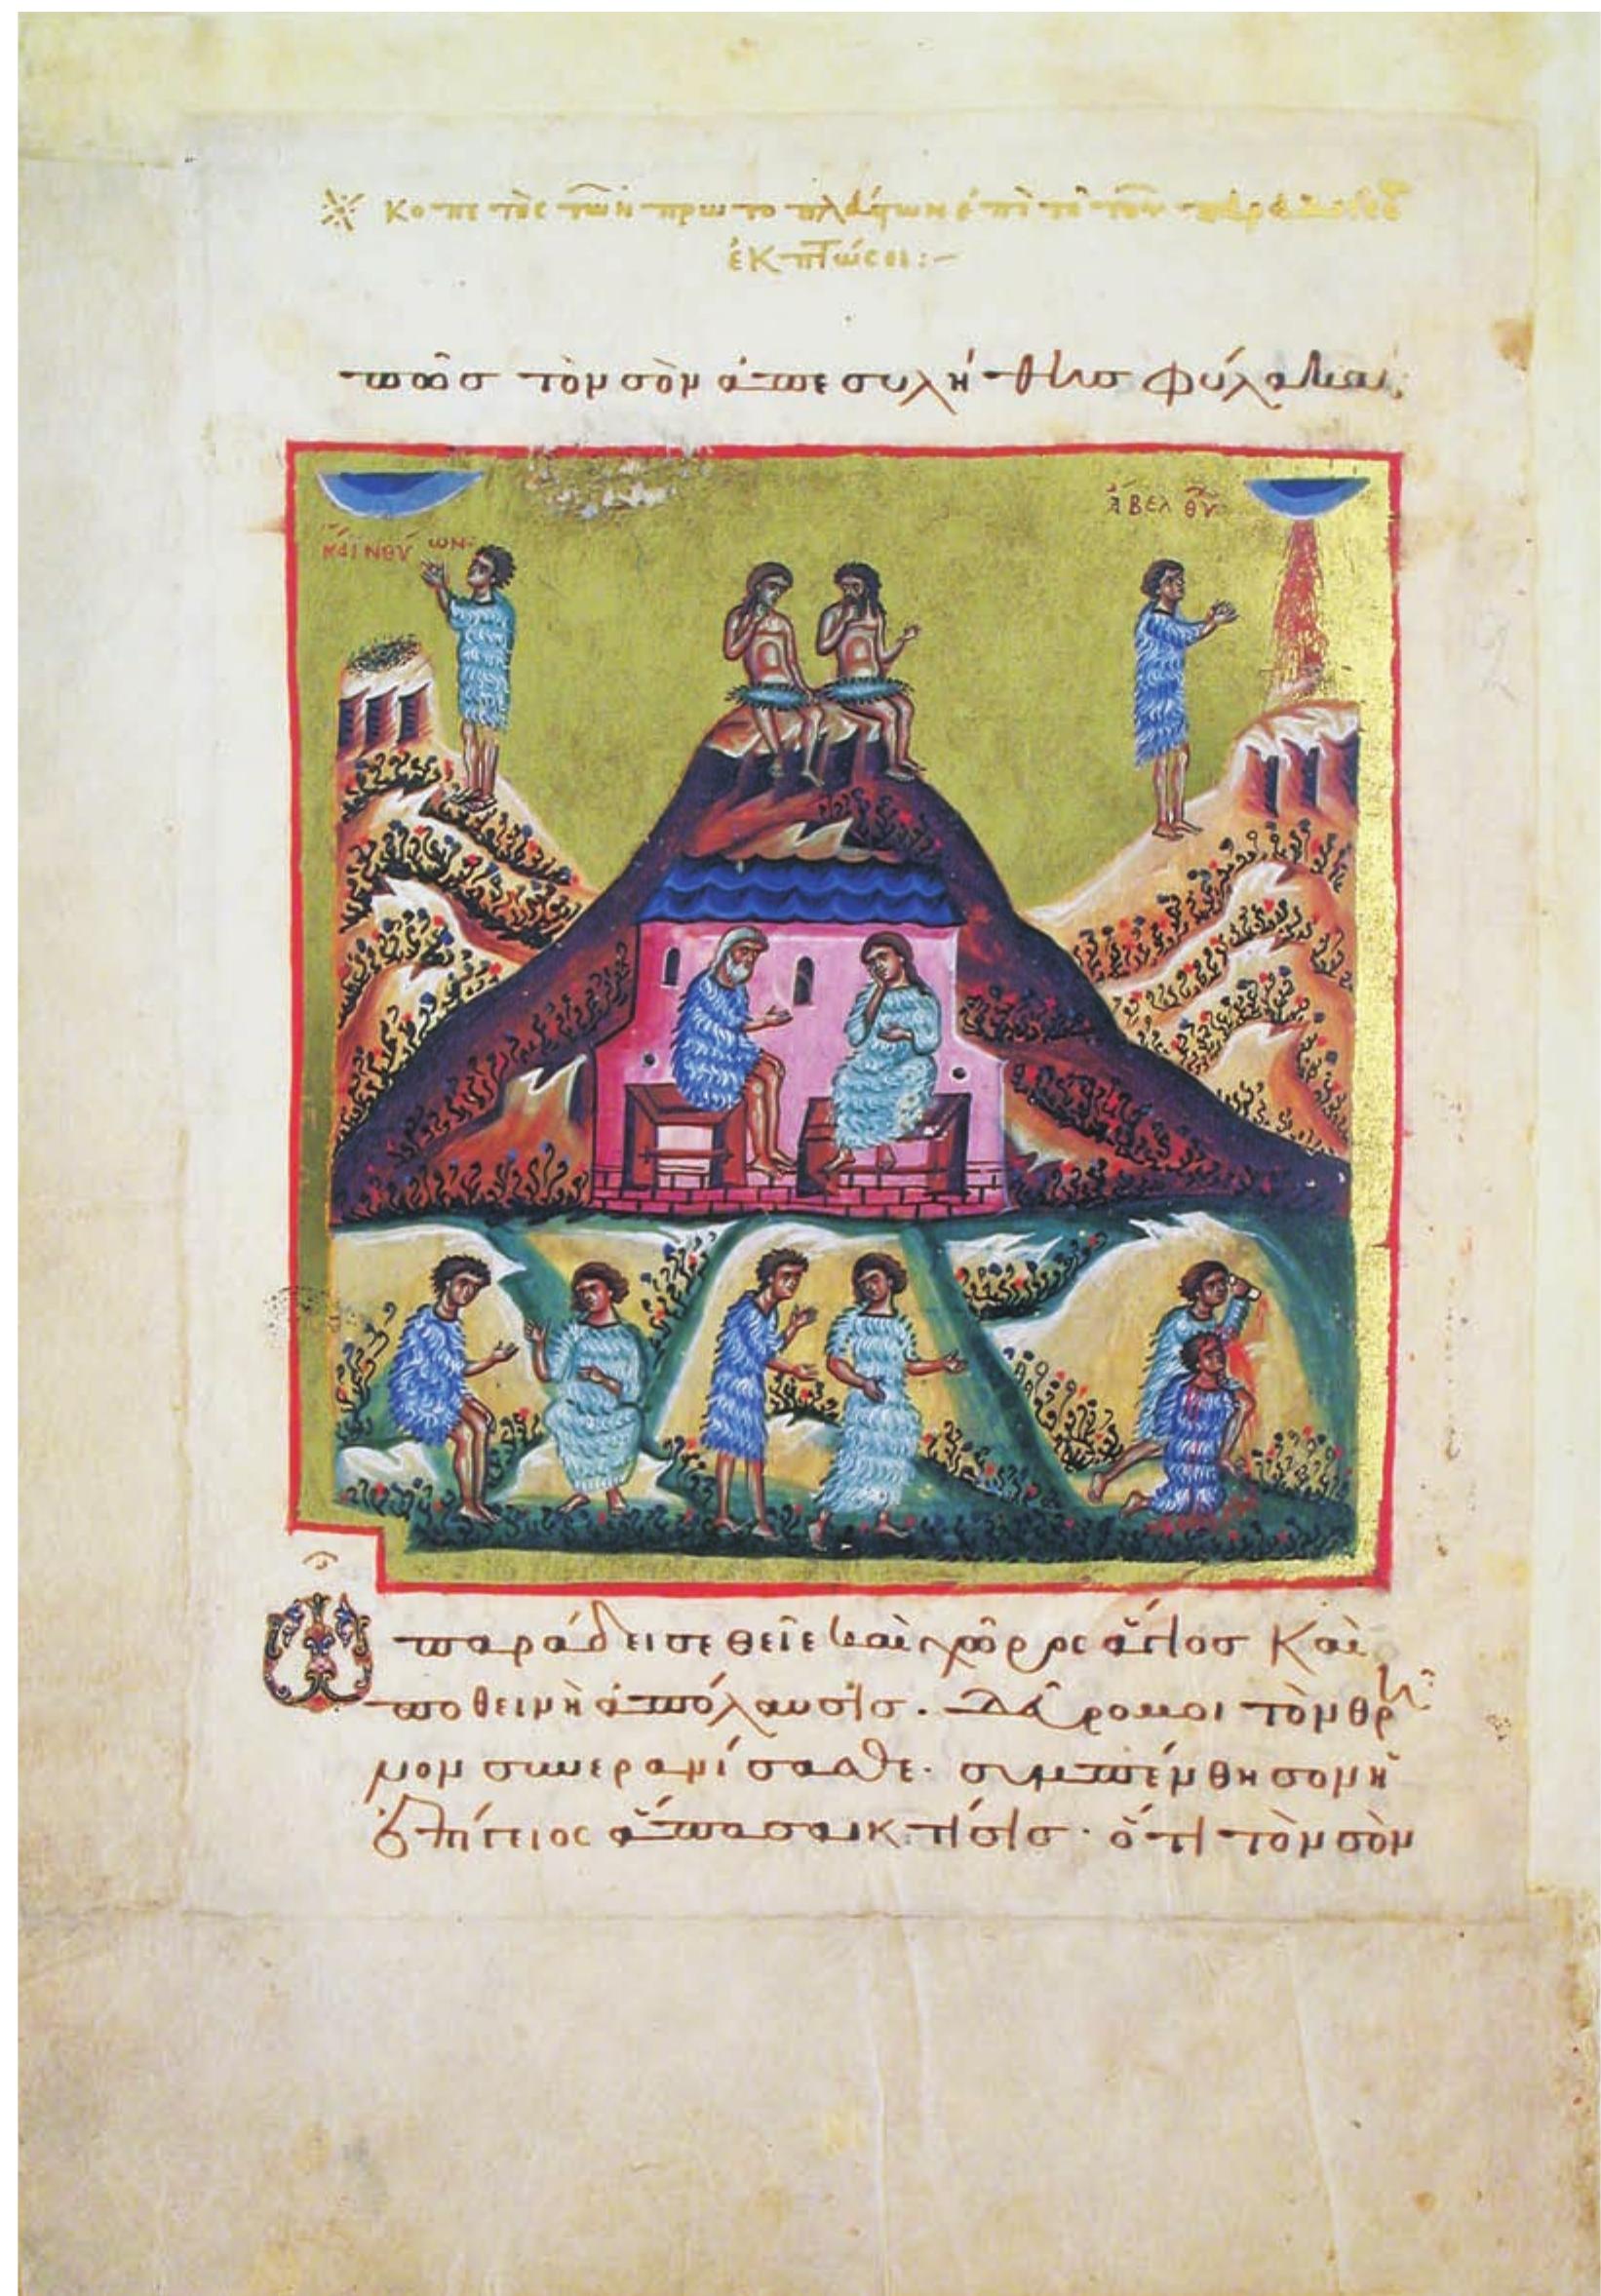 Κοπετὸς τῶν πρωτοπλάστων ἐπὶ τῆ τοῦ παραδείσου
ἐκπτώσει:–
πῶς τὸν σὸν ἀπεσυλήθης φύλακα;
κάϊν θύων
ἄβελ θύ
Ὦ παράδεισε θεῖε καὶ χῶρε ἅγιος καὶ
ποθεινὴ ἀπόλαυσις. δεῦρό μοι τὸν θρῆ
νον συνερανίσασθε. συμπένθησον ἡ
ἐπίγειος ἅπασα κτίσις. ὅτι τὸν σὸν